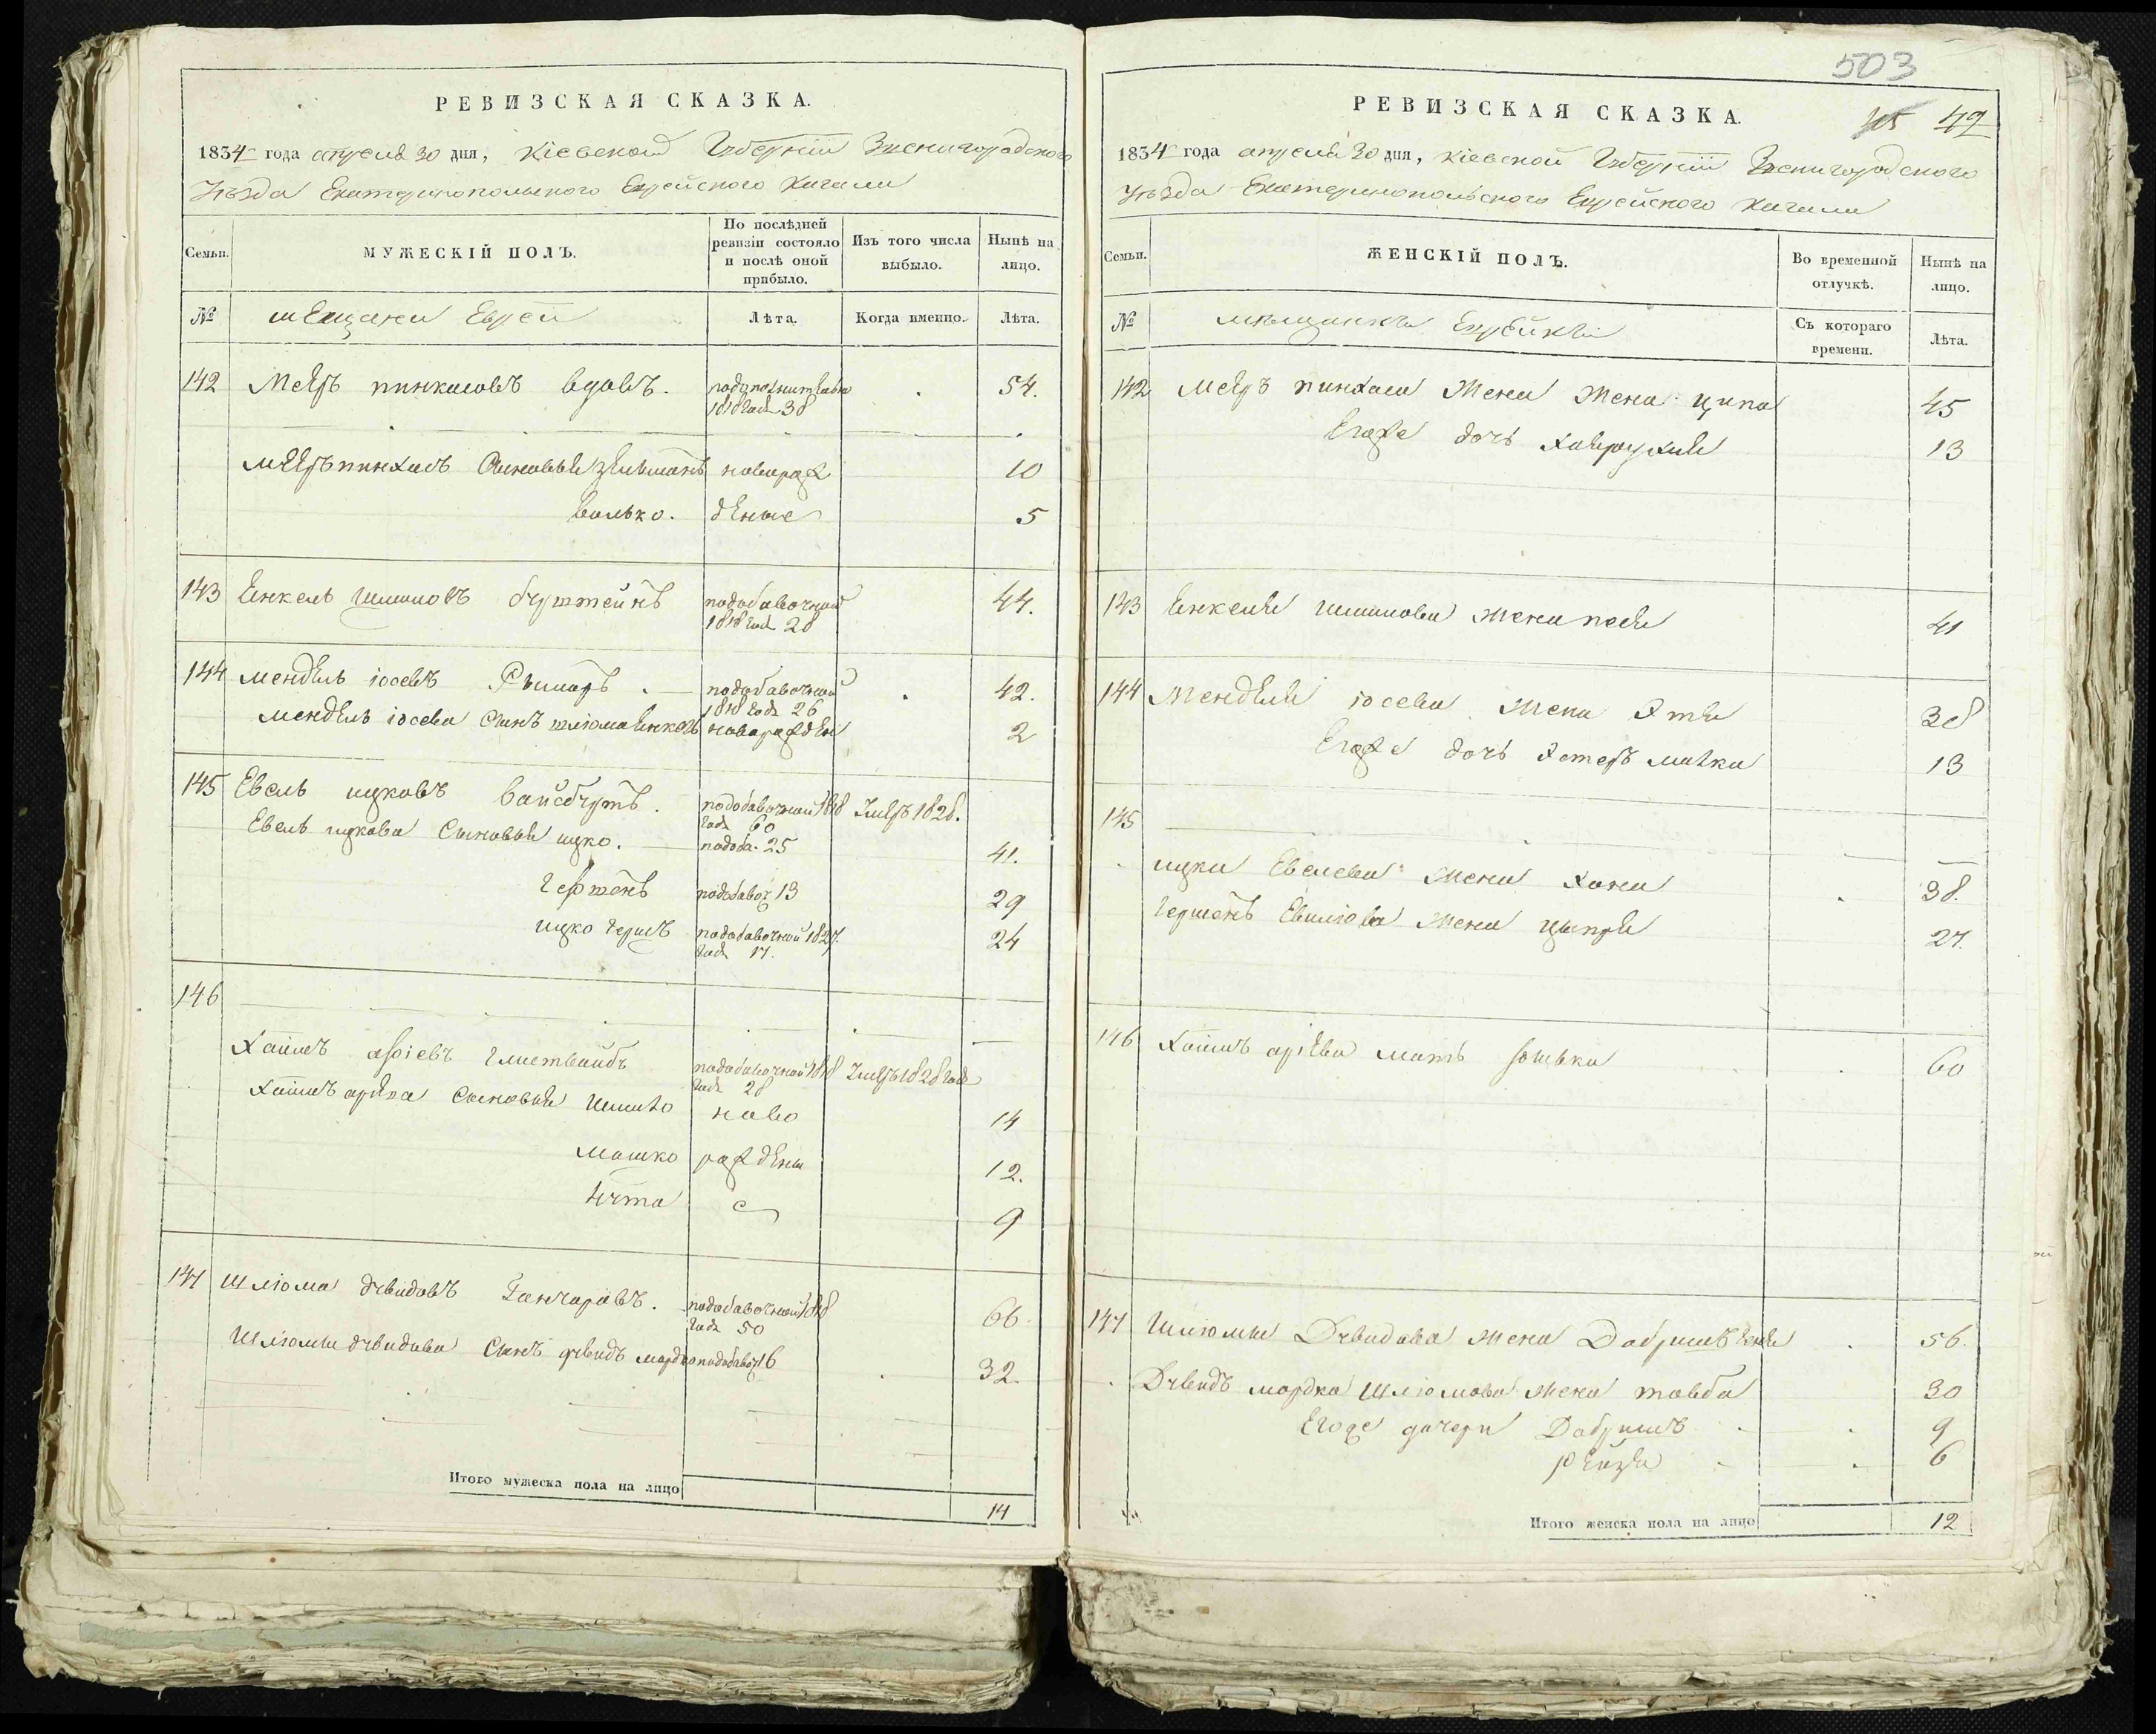 РЕВИЗСКАЯ СКАЗКА.
1834 года апреля 30 дня, Кіевской Губерніи Звенигородского
Уѣзда Екатеринопольского Еврейского Кагала
Семьи.
МУЖЕСКІЙ ПОЛЪ.
По послѣдней ревизіи состояло и послѣ оной прибыло.
Изъ того числа выбыло.
Нынѣ на лицо.
№
мещани Евреи
Лѣта.
Когда именно.
Лѣта.
142 Меєръ пинкасовъ 54.
1818 года 38
сыновьи зельманъ новорож 10
Волько. деные 5
143 Енкель Шмулов 44.
подобавочной
1818 года 28
144 Мендель іосевъ Рымаръ подобавочной 42.
1818 года 26
Мендель іосева сынъ шліома Енкель новорожден 2
145 Евель ицковъ подобавочной 1818 Умеръ 1828.
года 60
Евель ицкова Сыновьи ицко. подоба. 25 41.
Гершенъ подобавоч 13 29
ицко гершъ подобавочной 1827. 24
года 17.
146
Хаимъ аріевъ подобавочной 1818 Умеръ 1828 года
года 28
Хаимъ Сыновьи ново 14
Мошко рожденые 12.
Нута 9
147 Шліома дувидовъ Ганчаровъ. подобавочной 1818 66
года 50
Шліомы дувидова Сынъ дувидъ мордко подобавоч 16 32.
Итого мужеска пола на лицо
14
503
РЕВИЗСКАЯ СКАЗКА.
45 49
1834 года апреля 30 дня, Кіевской Губерніи Звенигородского
Уѣзда Екатеринопольского Еврейского Кагала
Семьи.
ЖЕНСКІЙ ПОЛЪ.
Во временной отлучкѣ.
Нынѣ на лицо.
№
мѣщанки Еврейки
Съ котораго времени.
Лѣта.
142 Меєръ пинхаса Жена ципа 45
Егоже дочь 13
143 Енкеля Жена песя 41
144 Менделя іосева Жена 38
Егоже дочь Хотеръ малка 13
145
ицка Евелева Жена Хана 38.
Гершенъ Жена ципря 27.
146 Хаимъ аріева мать 60
147 Шліомы Дувидова Жена Добришъ 56.
Дувидъ мордка Шліомова Жена товба 30
Егоже дочери Добришъ 9
рейзя 6
Итого женска пола на лицо
12